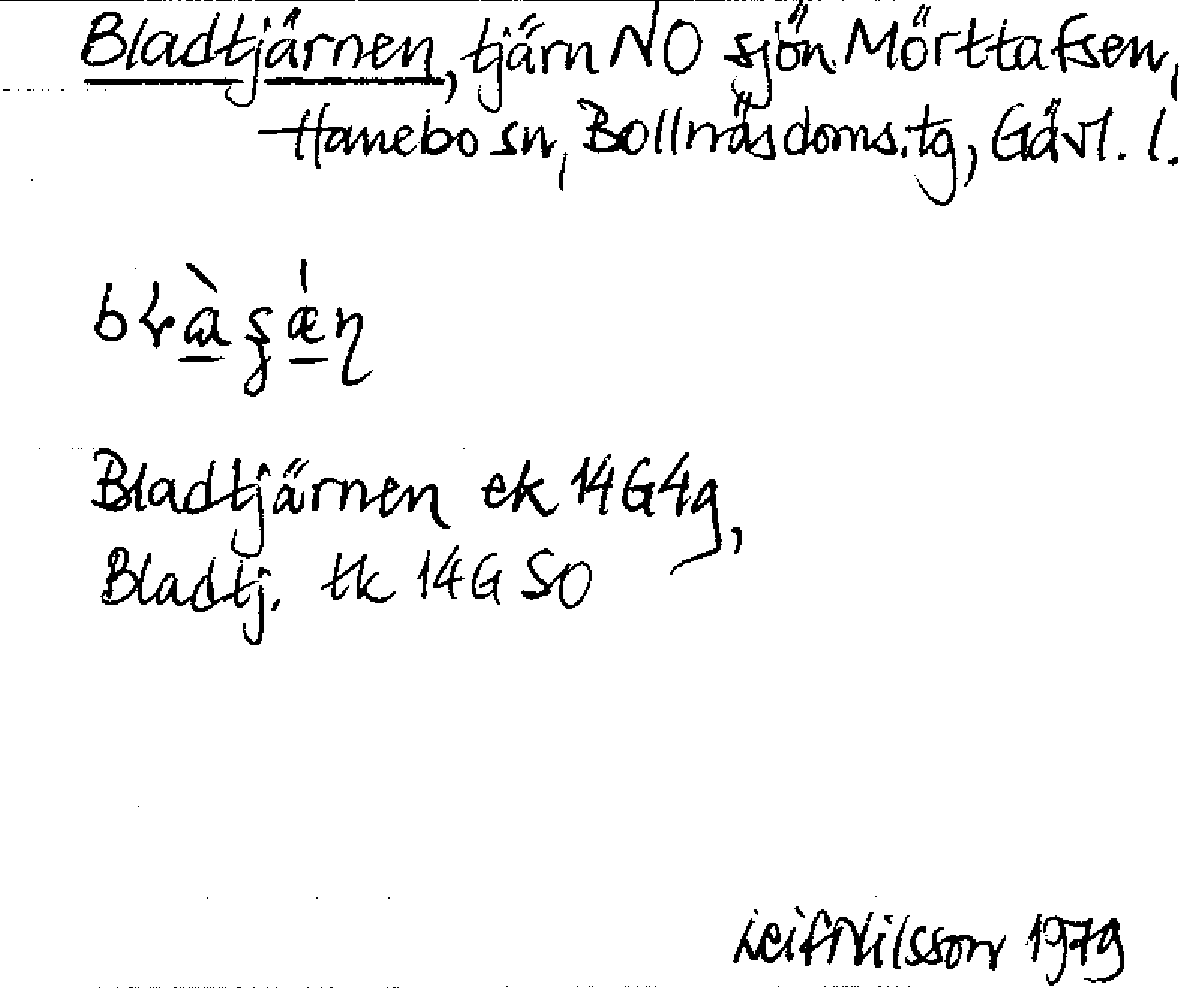 Bladtjärnen, tjärn NO sjön Mörttafsen,
Hanebo sn, Bollnäs doms.tg, Gävl. l.
Bladtjärnen ek 14G4g,
Bladtj. tk 14G SO
Leif Nilsson 1979